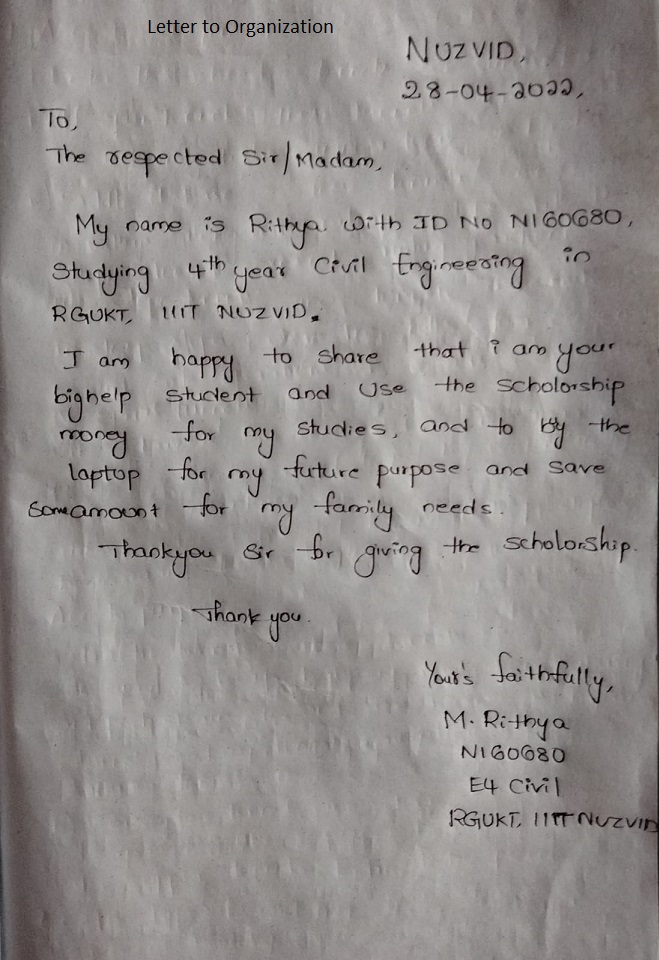 Letter to Organization
NUZVID,
28-04-2022,
To,
The respected Sir/Madam,
My name is Rithya with ID No N160680,
Studying 4th year Civil Engineering in
RGUKT, IIIT NUZVID.
I am happy to share that i am your
bighelp student and use the scholorship
money for my studies, and to by the
laptop for my future purpose and save
som amount for my family needs.
Thankyou Sir for giving the scholorship.
Thank you.
Your's faithfully,
M. Rithya
N160680
E4 Civil
RGUKT, IIIT NUZVID